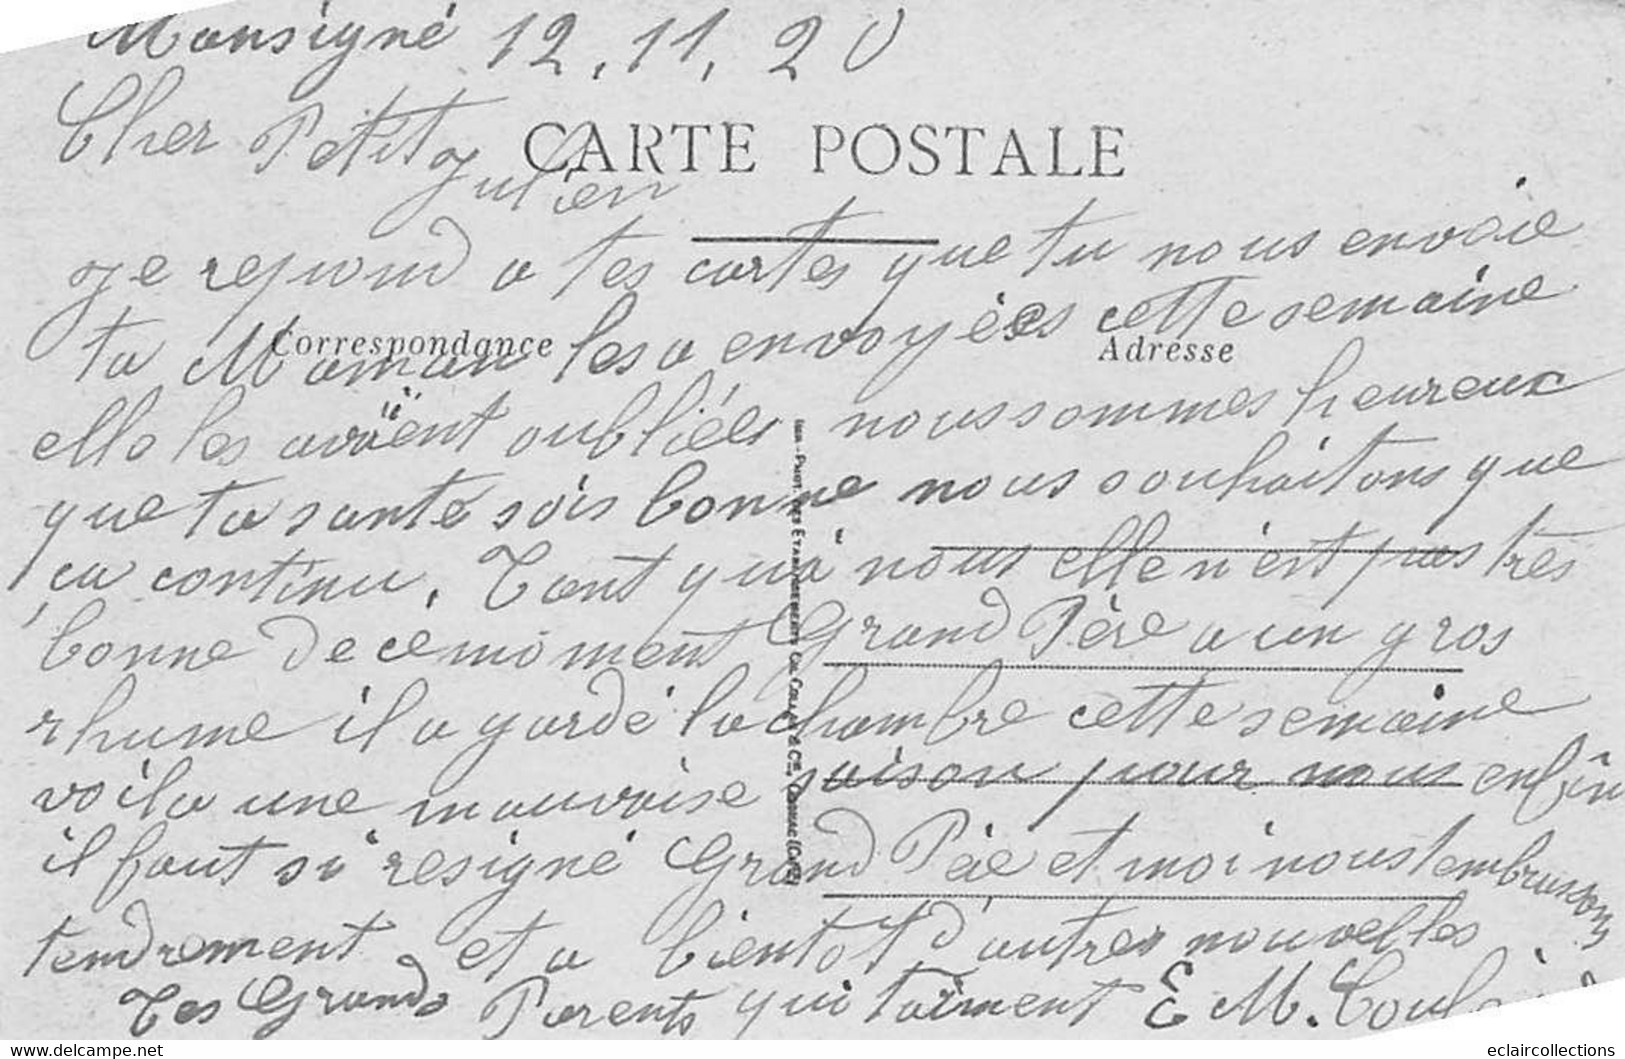 Mansigné 12.11.20
Cher Petit Julien
CARTE POSTALE
Je repond a tes cartes que tu nous envoie
Correspondance
Adresse
ta Maman les a envoyées cette semaine
elle les avaient oubliées nous sommes heureux
que ta santé sois bonne nous souhaitons que
ca continu. Tant qu'à nous elle n'est pas très
bonne de ce moment Grand Père a un gros
rhume il a gardé la chambre cette semaine
voila une mauvaise saison pour nous enfin
il faut si resigné Grand Père et moi nous t'embrassons
tendrement et a bientôt d'autres nouvelles
Tes Grands Parents qui t'aiment E M.
eclaircollections